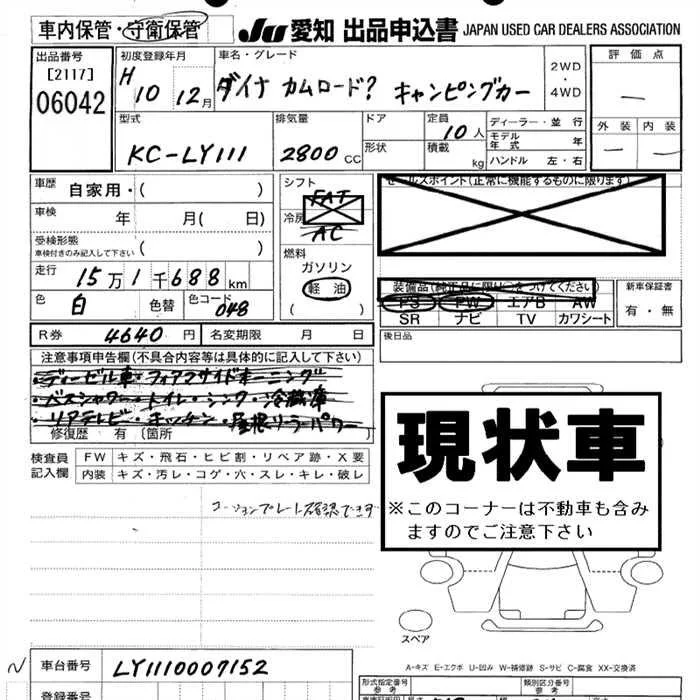 車内保管・守衛保管 JU 愛知 出品申込書 JAPAN USED CAR DEALERS ASSOCIATION
出品番号
[2117]
06042
初度登録年月
H 10 12月
車名・グレード
ダイナ カムロード? キャンピングカー
2WD
・
4WD
評価点
—
外装 内装
— —
型式
KC-LY111
排気量
2800 CC
ドア
形状
定員 10人
積載 kg
ディーラー・並行
モデル年式 年
ハンドル 左・右
車歴 自家用・( )
車検 年 月( 日)
受検形態
車検付きのみ記入して下さい ( )
走行 15万1千688km
色 白 色替 色コード 048
シフト
FAT
冷房
AC
燃料
ガソリン
軽油
( )
セールスポイント(正常に機能するものに限ります)
装備品(純正品に限り○をつけてください)
PS PW エアB AW
SR ナビ TV カワシート
新車保証書
有・無
R券 4640円 名変期限 月 日
後日品
注意事項申告欄(不具合内容等は具体的に記入して下さい)
修復歴 有(箇所 )
検査員
記入欄
FW キズ・飛石・ヒビ割・リペア跡・X要
内装 キズ・汚レ・コゲ・穴・スレ・キレ・破レ
コーションプレート確認できず
現状車
※このコーナーは不動車も含み
ますのでご注意下さい
スペア
A-キズ E-エクボ U-凹み W-補修跡 S-サビ C-腐食 XX-交換済
N 車台番号 LY1110007152
登録番号
形式指定番号
参考
類別区分番号
参考